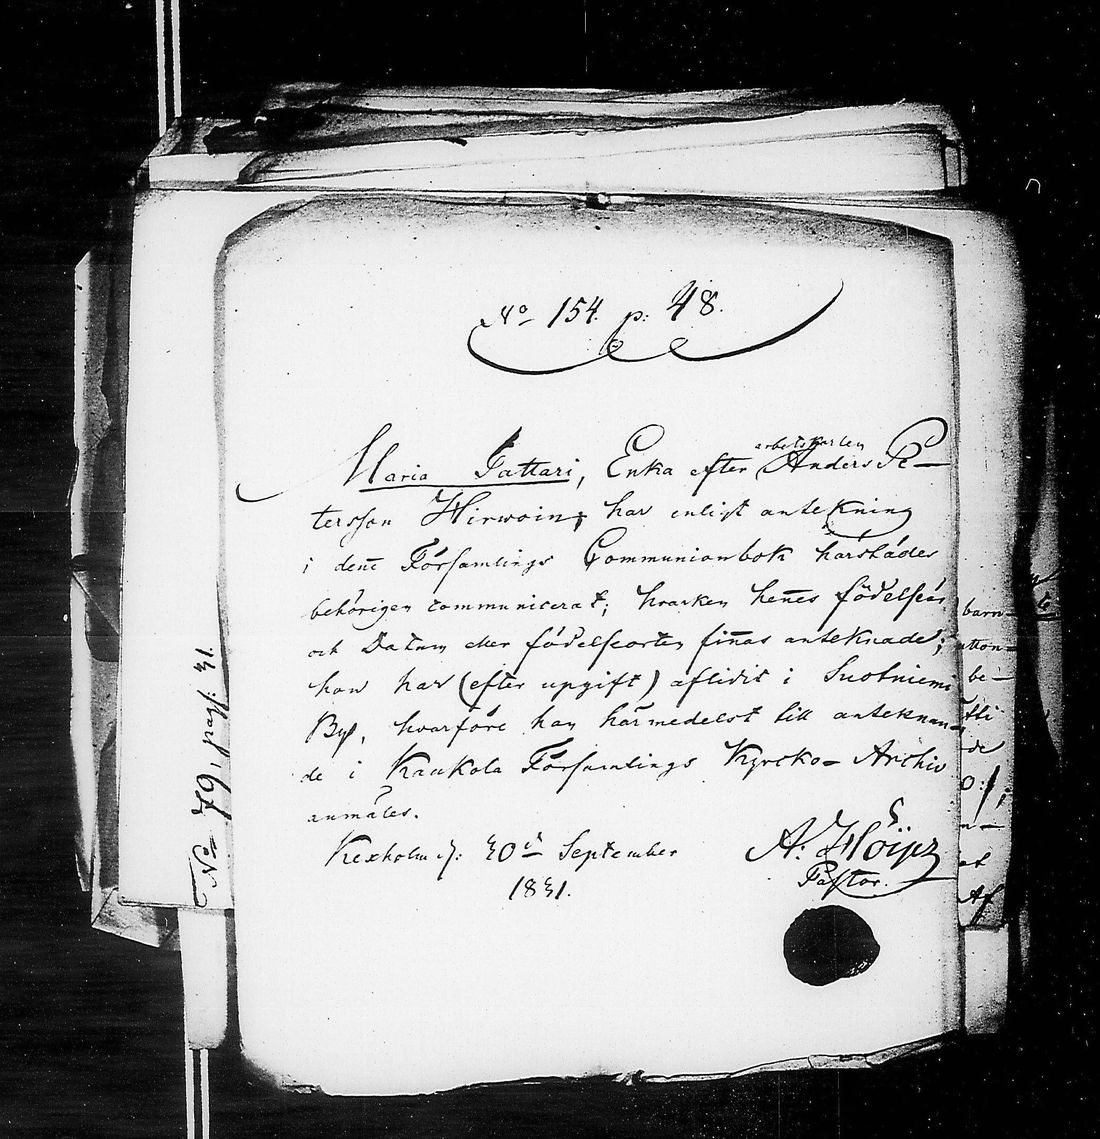 No 154. p: 48.
arbetskarlen
Maria Tattari, Enka efter Anders Pe-
tersson Hirwoin; har enligt antekning
i denē Församlings Communionbok härstädes
behörigen communicerat; hvarken henēs födelseår
och Datum eller födelseorten fiñas anteknade;
hon har (efter upgift) aflidit i Suotniemi
By, hvarföre hon härmedelst till anteknan-
de i Kaukola Församlings Kyrcko-Archiv
anmäles.
Kexholm d: 30d September
1831.
A: Höijer
Pastor.
No 79, pag. 31.
barn-
be-
de
et
Af